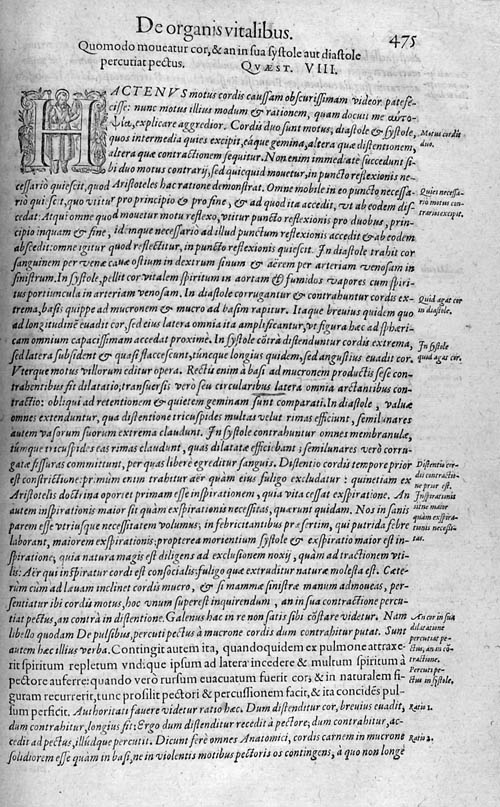 De organis vitalibus.
475
Quomodo moueatur cor, & an in sua systole aut diastole
percutiat pectus. QVÆST. VIII.
HACTENVS motus cordis caussam obscurissimam videor patefe-
cisse: nunc motus illius modum & rationem, quam docuit me
explicare aggredior. Cordis duo sunt motus, diastole & systole,
Motus cordis
duo.
quos intermedia quies excipit, eaque gemina, altera quæ distentionem,
altera quæ contractionem sequitur. Non enim immediatè succedunt si-
bi duo motus contrarij, sed quicquid mouetur, in puncto reflexionis ne-
cessariò quiescit, quod Aristoteles hac ratione demonstrat. Omne mobile in eo puncto necessa-
Quies necessa-
riò quiescit, quo vtitur pro principio & pro fine, & ad quod ita accedit, vt ab eodem dis-
rio motus con-
cedat: Atqui omne quod mouetur motu reflexo, vtitur puncto reflexionis pro duobus, prin-
trarios excipit.
cipio inquam & fine, idemque necessario ad illud punctum reflexionis accedit & ab eodem
abscedit: omne igitur quod reflectitur, in puncto reflexionis quiescit. In diastole trahit cor
sanguinem per venæ cauæ ostium in dextrum sinum & aërem per arteriam venosam in
sinistrum. In systole, pellit cor vitalem spiritum in aortam & fumidos vapores cum spiri-
tus portiuncula in arteriam venosam. In diastole corrugantur & contrahuntur cordis ex-
Quid agat cor
trema, basis quippe ad mucronem & mucro ad basim rapitur. Itaque breuius quidem quo
in diastole.
ad longitudinē euadit cor, sed eius latera omnia ita amplificantur, vt figura hæc ad sphæri-
cam omnium capacissimam accedat proximè. In systole cōtrà distenduntur cordis extrema,
In systole
sed latera subsident & quasi flaccescunt, túncque longius quidem, sed angustius euadit cor.
quid agat cor.
Vterque motus villorum editur opera. Recti enim à basi ad mucronem productis sese con-
trahentibus fit dilatatio, transuersis verò seu circularibus latera omnia arctantibus con-
tractio: obliqui ad retentionem & quietem geminam sunt comparati. In diastole, valuæ
omnes extenduntur, qua distentione tricuspides multas velut rimas efficiunt, semilunares
autem vasorum suorum extrema claudunt. In systole contrahuntur omnes membranulæ,
túmque tricuspides eas rimas claudunt, quas dilatatæ efficiebant: semilunares verò corru-
gatæ fissuras committunt, per quas liberè egreditur sanguis. Distentio cordis tempore prior
Distentio cor-
est constrictione: primùm enim trahitur aër quàm eius fuligo excludatur: quinetiam ex
dis contractio-
ne prior est.
Aristotelis doctrina oportet primam esse inspirationem, quia vita cessat exspiratione. An
Inspirationis
autem inspirationis maior sit quàm exspirationis necessitas, quærunt quidam. Nos in sanis
sitne maior
parem esse vtriusque necessitatem volumus; in febricitantibus præsertim, qui putrida febre
quàm exspira-
tionis necessi-
laborant, maiorem exspirationis: propterea morientium systole & exspiratio maior est in-
tas.
spiratione, quia natura magis est diligens ad exclusionem noxij, quàm ad tractionem vti-
lis: Aër qui inspiratur cordi est consocialis: fuligo quæ extruditur naturæ molesta est. Cæte-
rùm cùm ad læuam inclinet cordis mucro, & si mammæ sinistræ manum admoueas, per-
sentiatur ibi cordis motus, hoc vnum superest inquirendum, an in sua contractione percu-
tiat pectus, an contrà in distentione. Galenus hac in re non satis sibi cōstare videtur. Nam
An cor in sua
libello quodam De pulsibus, percuti pectus à mucrone cordis dum contrahitur putat. Sunt
dilatatione
percutiat pe-
autem hæc illius verba. Contingit autem ita, quandoquidem ex pulmone attraxe-
ctus, an in cō-
rit spiritum repletum vndique ipsum ad latera incedere & multum spiritum à
tractione.
pectore auferre: quando verò rursum euacuatum fuerit cor, & in naturalem fi-
Percuti pe-
ctus in systole.
guram recurrerit, tunc prosilit pectori & percussionem facit, & ita concidēs pul-
sum perficit. Authoritati fauere videtur ratio hæc. Dum distenditur cor, breuius euadit,
Ratio 1.
dum contrahitur, longius fit: Ergo dum distenditur recedit à pectore, dum contrahitur, ac-
cedit ad pectus, illúdque percutit. Dicunt ferè omnes Anatomici, cordis carnem in mucrone
Ratio 2.
solidiorem esse quàm in basi, ne in violentis motibus pectoris os contingens, à quo non longè